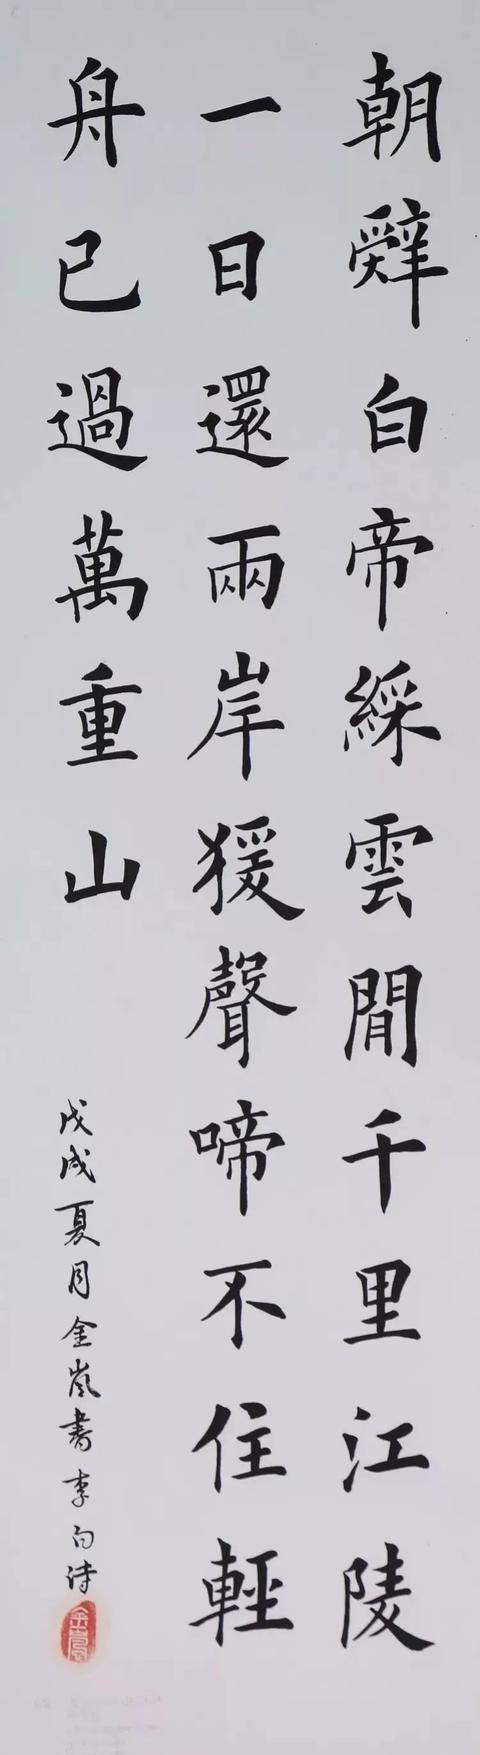 朝辤白帝綵雲間千里江陵
一日還兩岸猨聲啼不住輕
舟已過萬重山
戊戌夏月金嵐書李白詩